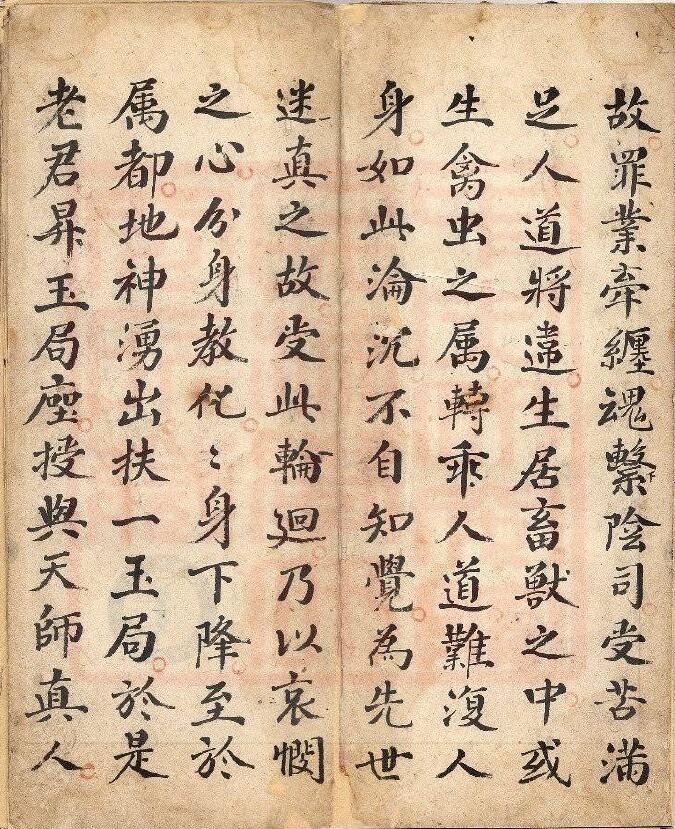 故罪業牽纏魂繫陰司受苦滿
足人道將違生居畜獸之中或
生禽虫之属轉乖人道難復人
身如此淪沉不自知覺為先世
迷真之故受此輪迴乃以哀憫
之心分身教化〻身下降至於
属都地神湧出扶一玉局於是
老君昇玉局座授與天師真人